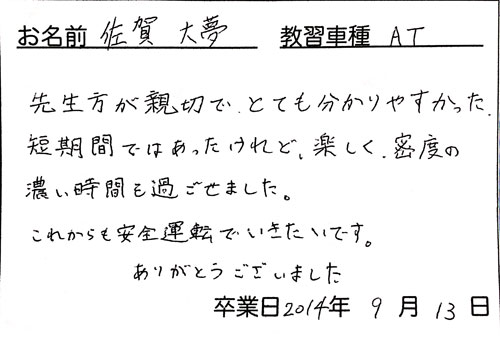 お名前 佐賀 大夢 教習車種 AT
先生方が親切で、とても分かりやすかった。
短期間ではあったけれど、楽しく、密度の
濃い時間も過ごせました。
これからも安全運転でいきたいです。
ありがとうございました
卒業日2014年 9月 13日